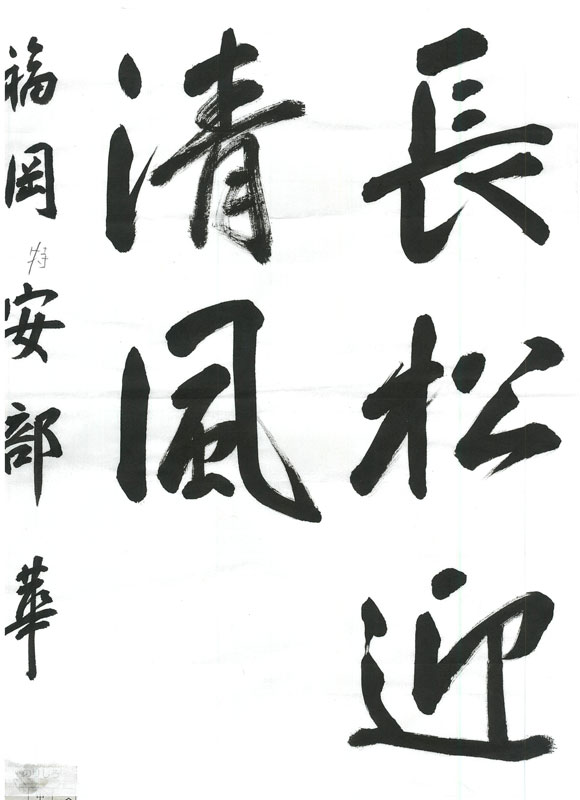 長松迎
清風
福岡 特 安部華